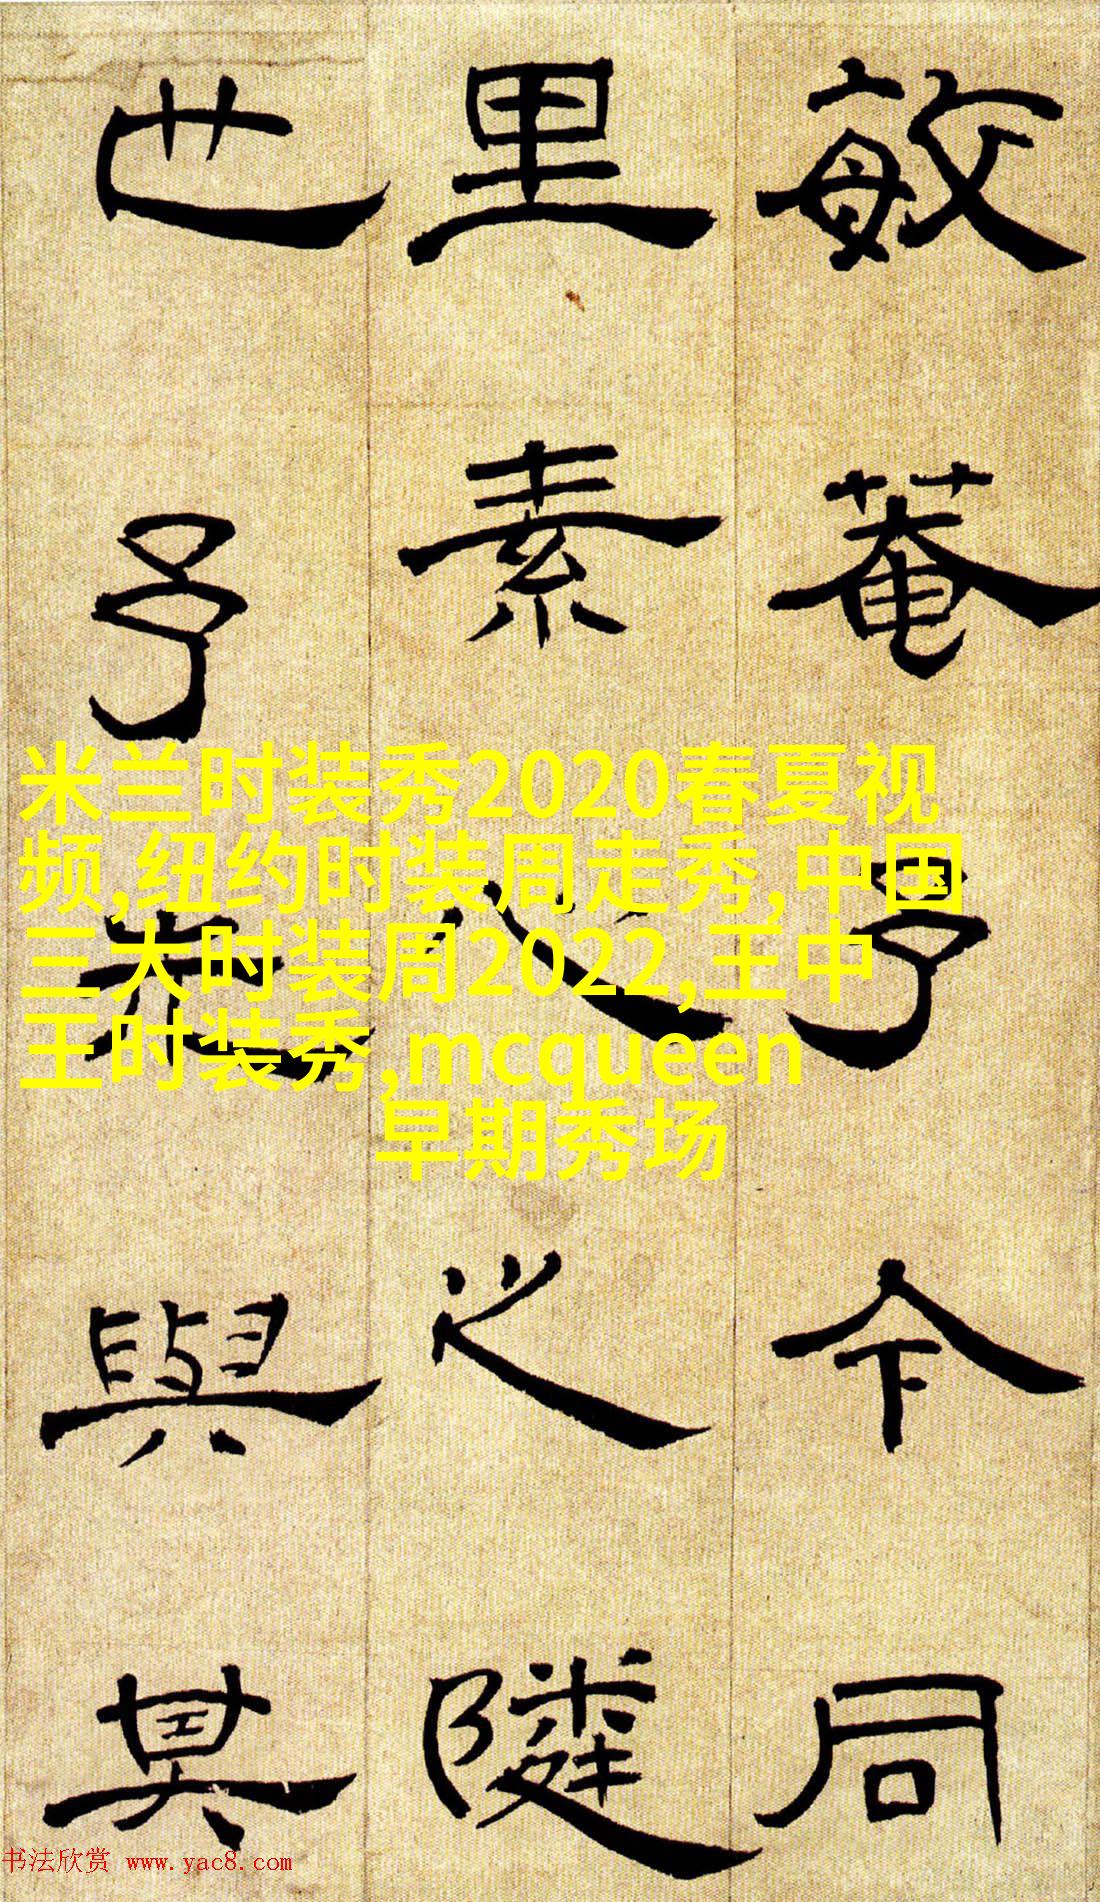 敏菴予今同
里素心之隣
也予先與其
米兰时装秀2020春夏视
频,纽约时装周走秀,中国
三大时装周2022,王中
王时装秀,mcqueen
早期秀场
书法欣赏 www.yac8.com